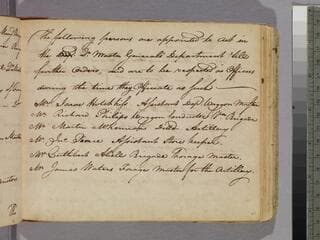 the following persons are appointed to act in
the Qr Master General's Department till
further orders, and are to be respected as officers
during the time they officiate as such
Mr Isaac Assistant Depy Waggon Master
Mr Richard Philips Waggon Conductor Brigade
Mr Martin Ditto Artillery
Mr Jno Assistant Store keeper
Mr Cuthbert Brigade Forage Master
Mr James Waters Forage Master for the Artillery